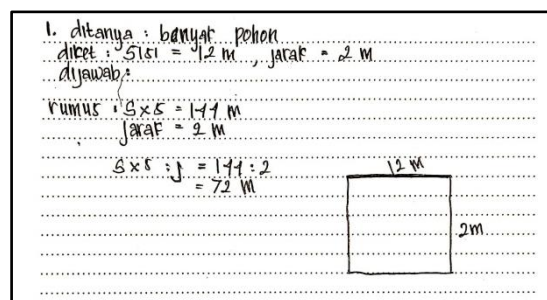 1. ditanya : banyak pohon
diket : sisi = 12 m , jarak = 2 m
dijawab :
rumus : S x S = 144 m
jarak = 2 m
S x S : j = 144 : 2
= 72 m
12 m
2m